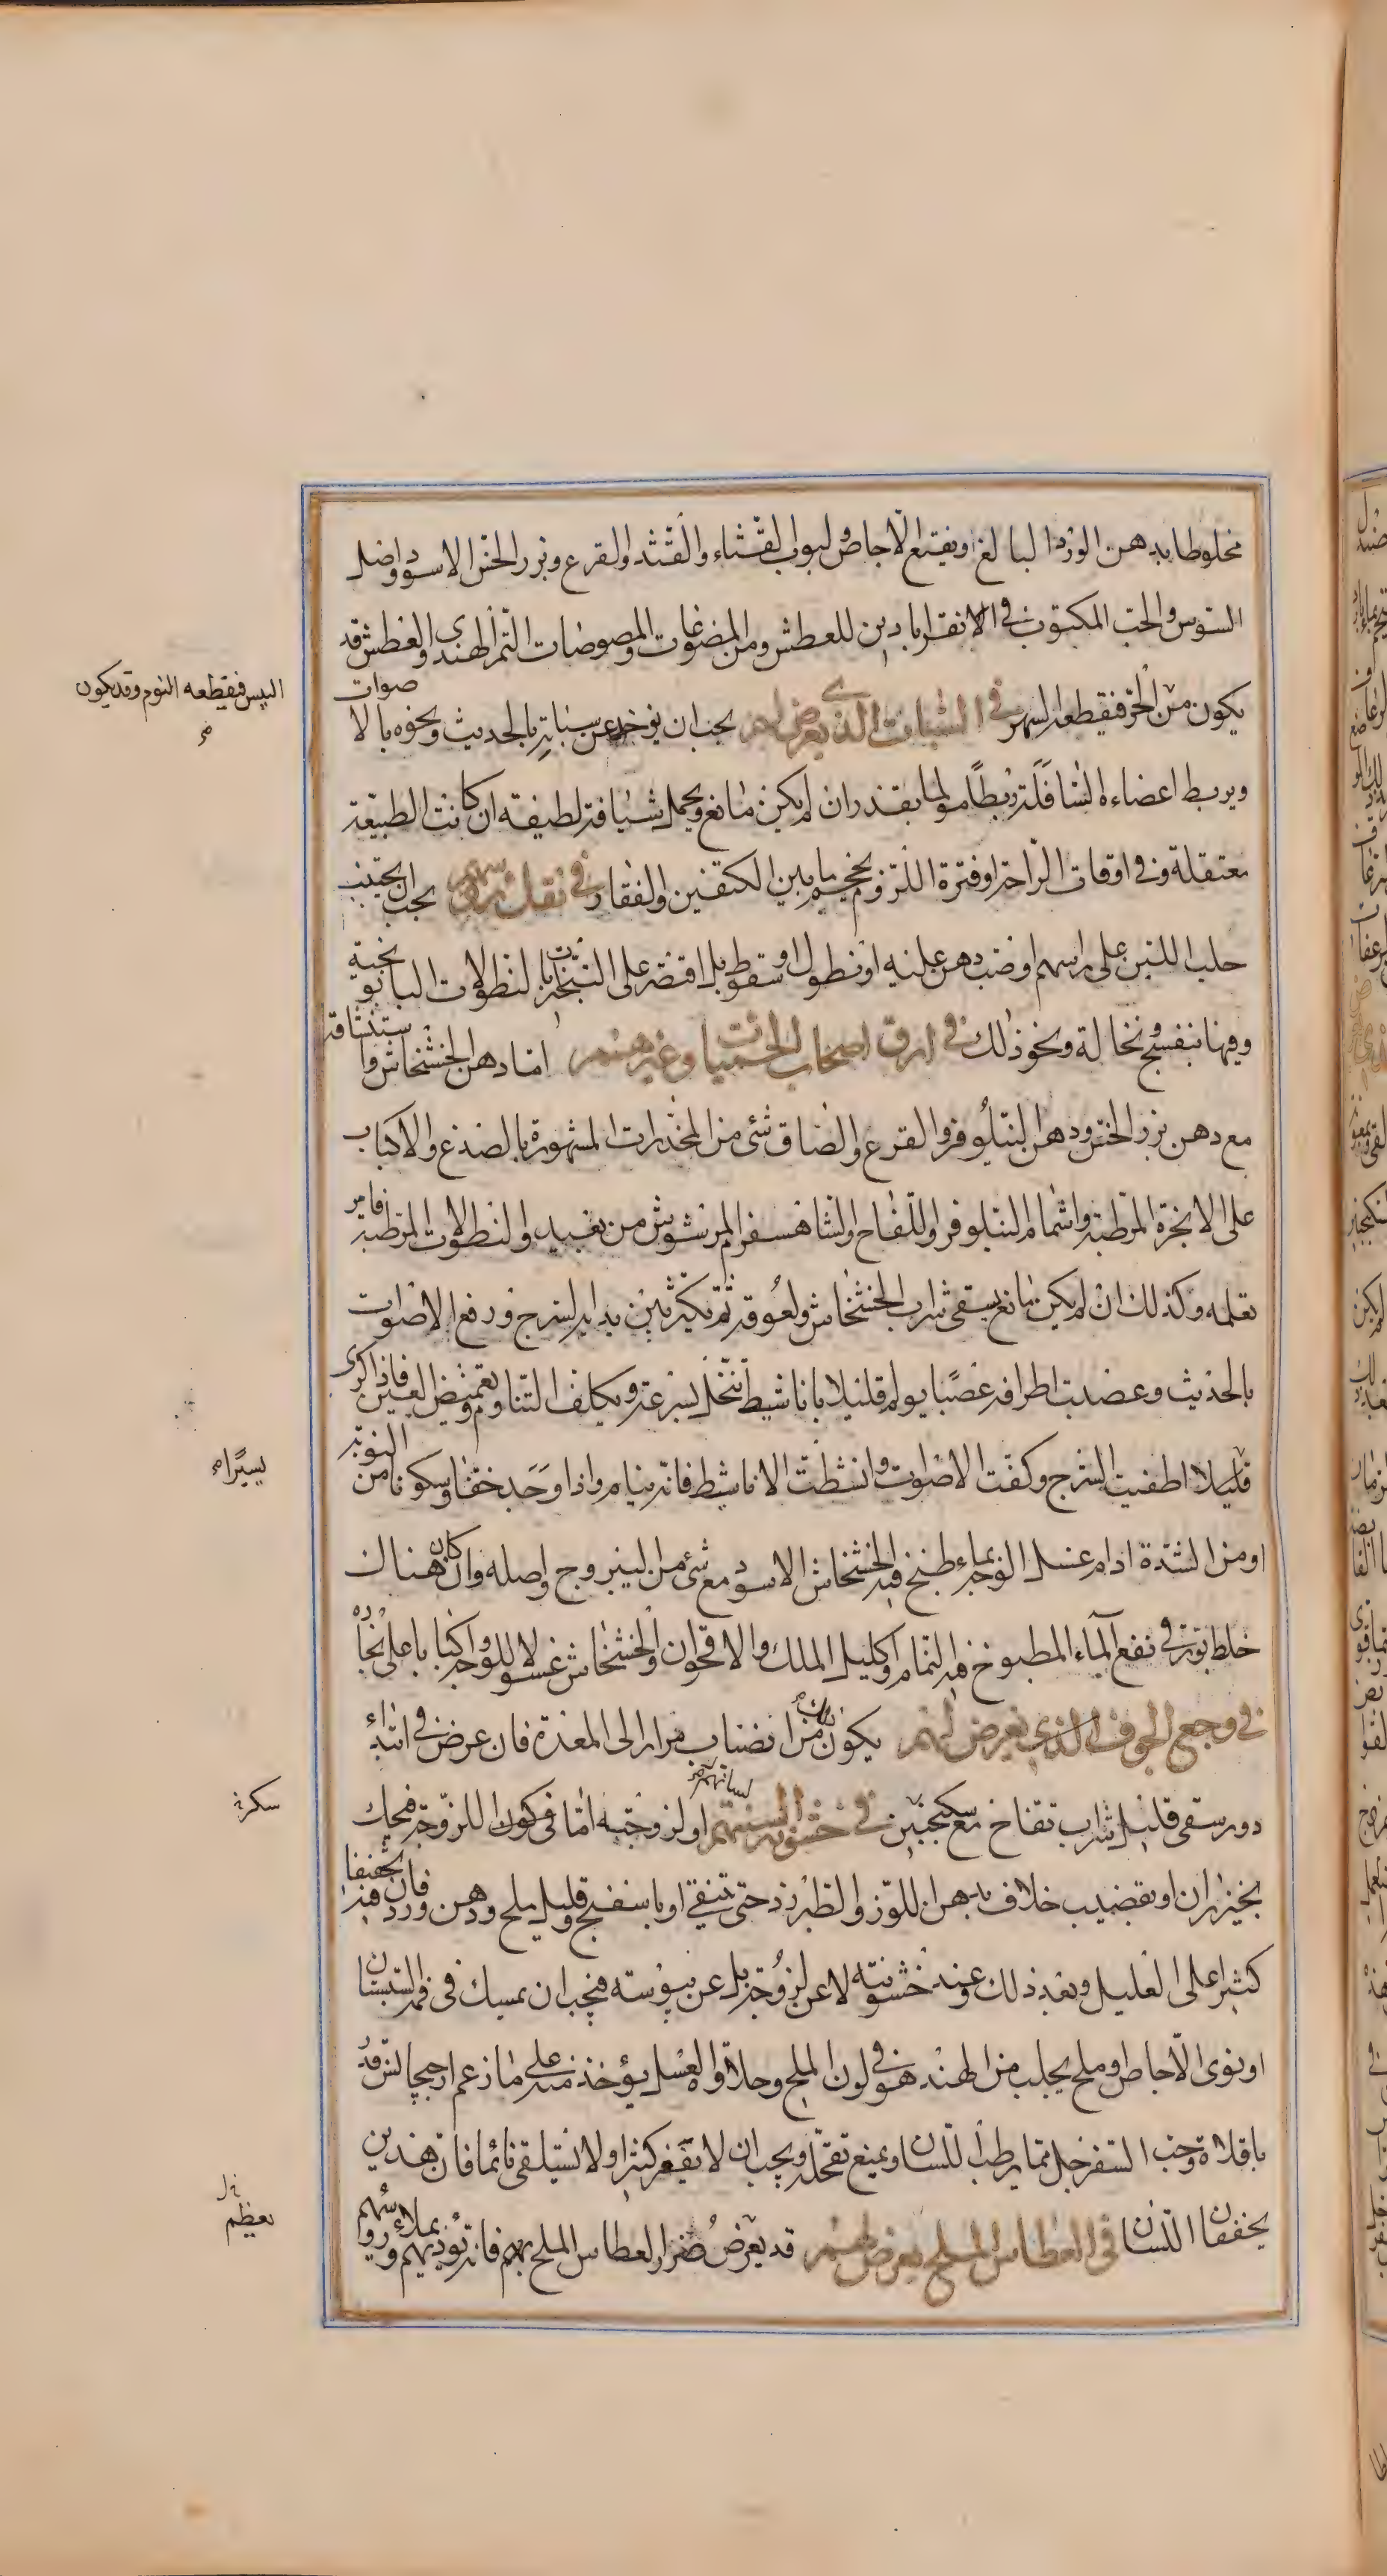 مخلوطا بدهن الورد البالغ ونقيع الاجاص ولبوب القثاء والقثد والقرع وبزر الخس الاسود واصل
السوس والحب المكتوب في الاقراباذين للعطش ومن المضوغات والمصوصات التمر الهندي والعطش قد
يكون من الحر فيقطعه السهر في السبات الذي يعرض لهم يجب ان يوخذ عن سباته بالحديث ونحوه بالاصوات
ويربط اعضاءه السافلة ربطا مولما بقدر ان لم يكن مانع ويحمل شيافة لطيفة ان كانت الطبيعة
معتقلة وفي اوقات الراحة او فترة اللزوم يحجم ما بين الكتفين والفقار في ثقل راسهم يجب ان يجتنب
حلب اللبن على راسهم او صب دهن عليه او نطول او سقوط بل اقتصر على التبخيرات بالنطولات البابونجية
وفيها بنفسج ونخالة ونحو ذلك في ارق اصحاب الحميات وغيرهم اما دهن الخشخاش واستنشاقه
مع دهن بزر الخس ودهن النيلوفر والقرع والصاق شئ من المخدرات المشهورة بالصدغ والاكباب
على الابخرة المرطبة واشمام النيلوفر واللفاح والشاهسفرم المرشوش من بعيد والنطولات المرطبة فامر
تعلمه وكذلك ان لم يكن مانع يسقى شراب الخشخاش ولعوقه ثم تكثر بين يديه السرج ورفع الاصوات
بالحديث وعضدت اطرافه عصبا يولم قليلا باناشيط تنحل بسرعة ويكلف التناوم وتغميض العين فاذا كرى
قليلا اطفيت السرج وكفت الاصوات وانشطت الاناشيط فانه ينام واذا وجد خفا وسكونا من النوبة
او من الشدة ادام غسل الوجه بماء طبخ فيه الخشخاش الاسود مع شئ من اليبروج واصله وان كان هناك
خلط بورقي نفع الماء المطبوخ فيه النمام واكليل الملك والاقحوان والخشخاش غسولا للوجه واكبابا على بخاره
في وجع الجوف الذي يعرض لهم يكون ذلك من انصباب مرار الى المعدة فان عرض في ابتداء
دور سقى قليل شراب تفاح مع سكنجبين في خشونة السنتهم او لزوجته اما في كون اللزوجة فيحك
بخيزران او بقضيب خلاف بدهن اللوز والطبرزد حتى تنقى او باسفنج وقليل ملح ودهن ورد فان فيه تخفيفا
كثيرا على العليل وبعد ذلك وعند خشونته لا عن لزوجة بل عن يبوسة فيجب ان يمسك في فمه السبستان
او نوى الاجاص او ملح يجلب من الهند هو في لون الملح وحلاوة العسل يؤخذ منه على ما زعم ارجيجانس قدر
باقلاة وحب السفرجل مما يرطب اللسان ويمنع تقحله ويجب ان لا يفغر كثيرا ولا يستلقى نائما فان هذين
يجففان اللسان في العطاس الملح يعرض لهم قد يعرض ضرر العطاس الملح بهم فانه يؤذيهم ويملاء رؤسهم
اليبس فيقطعه النوم وقد يكون
يسيرا
لسانهم
سكرة
يعظم